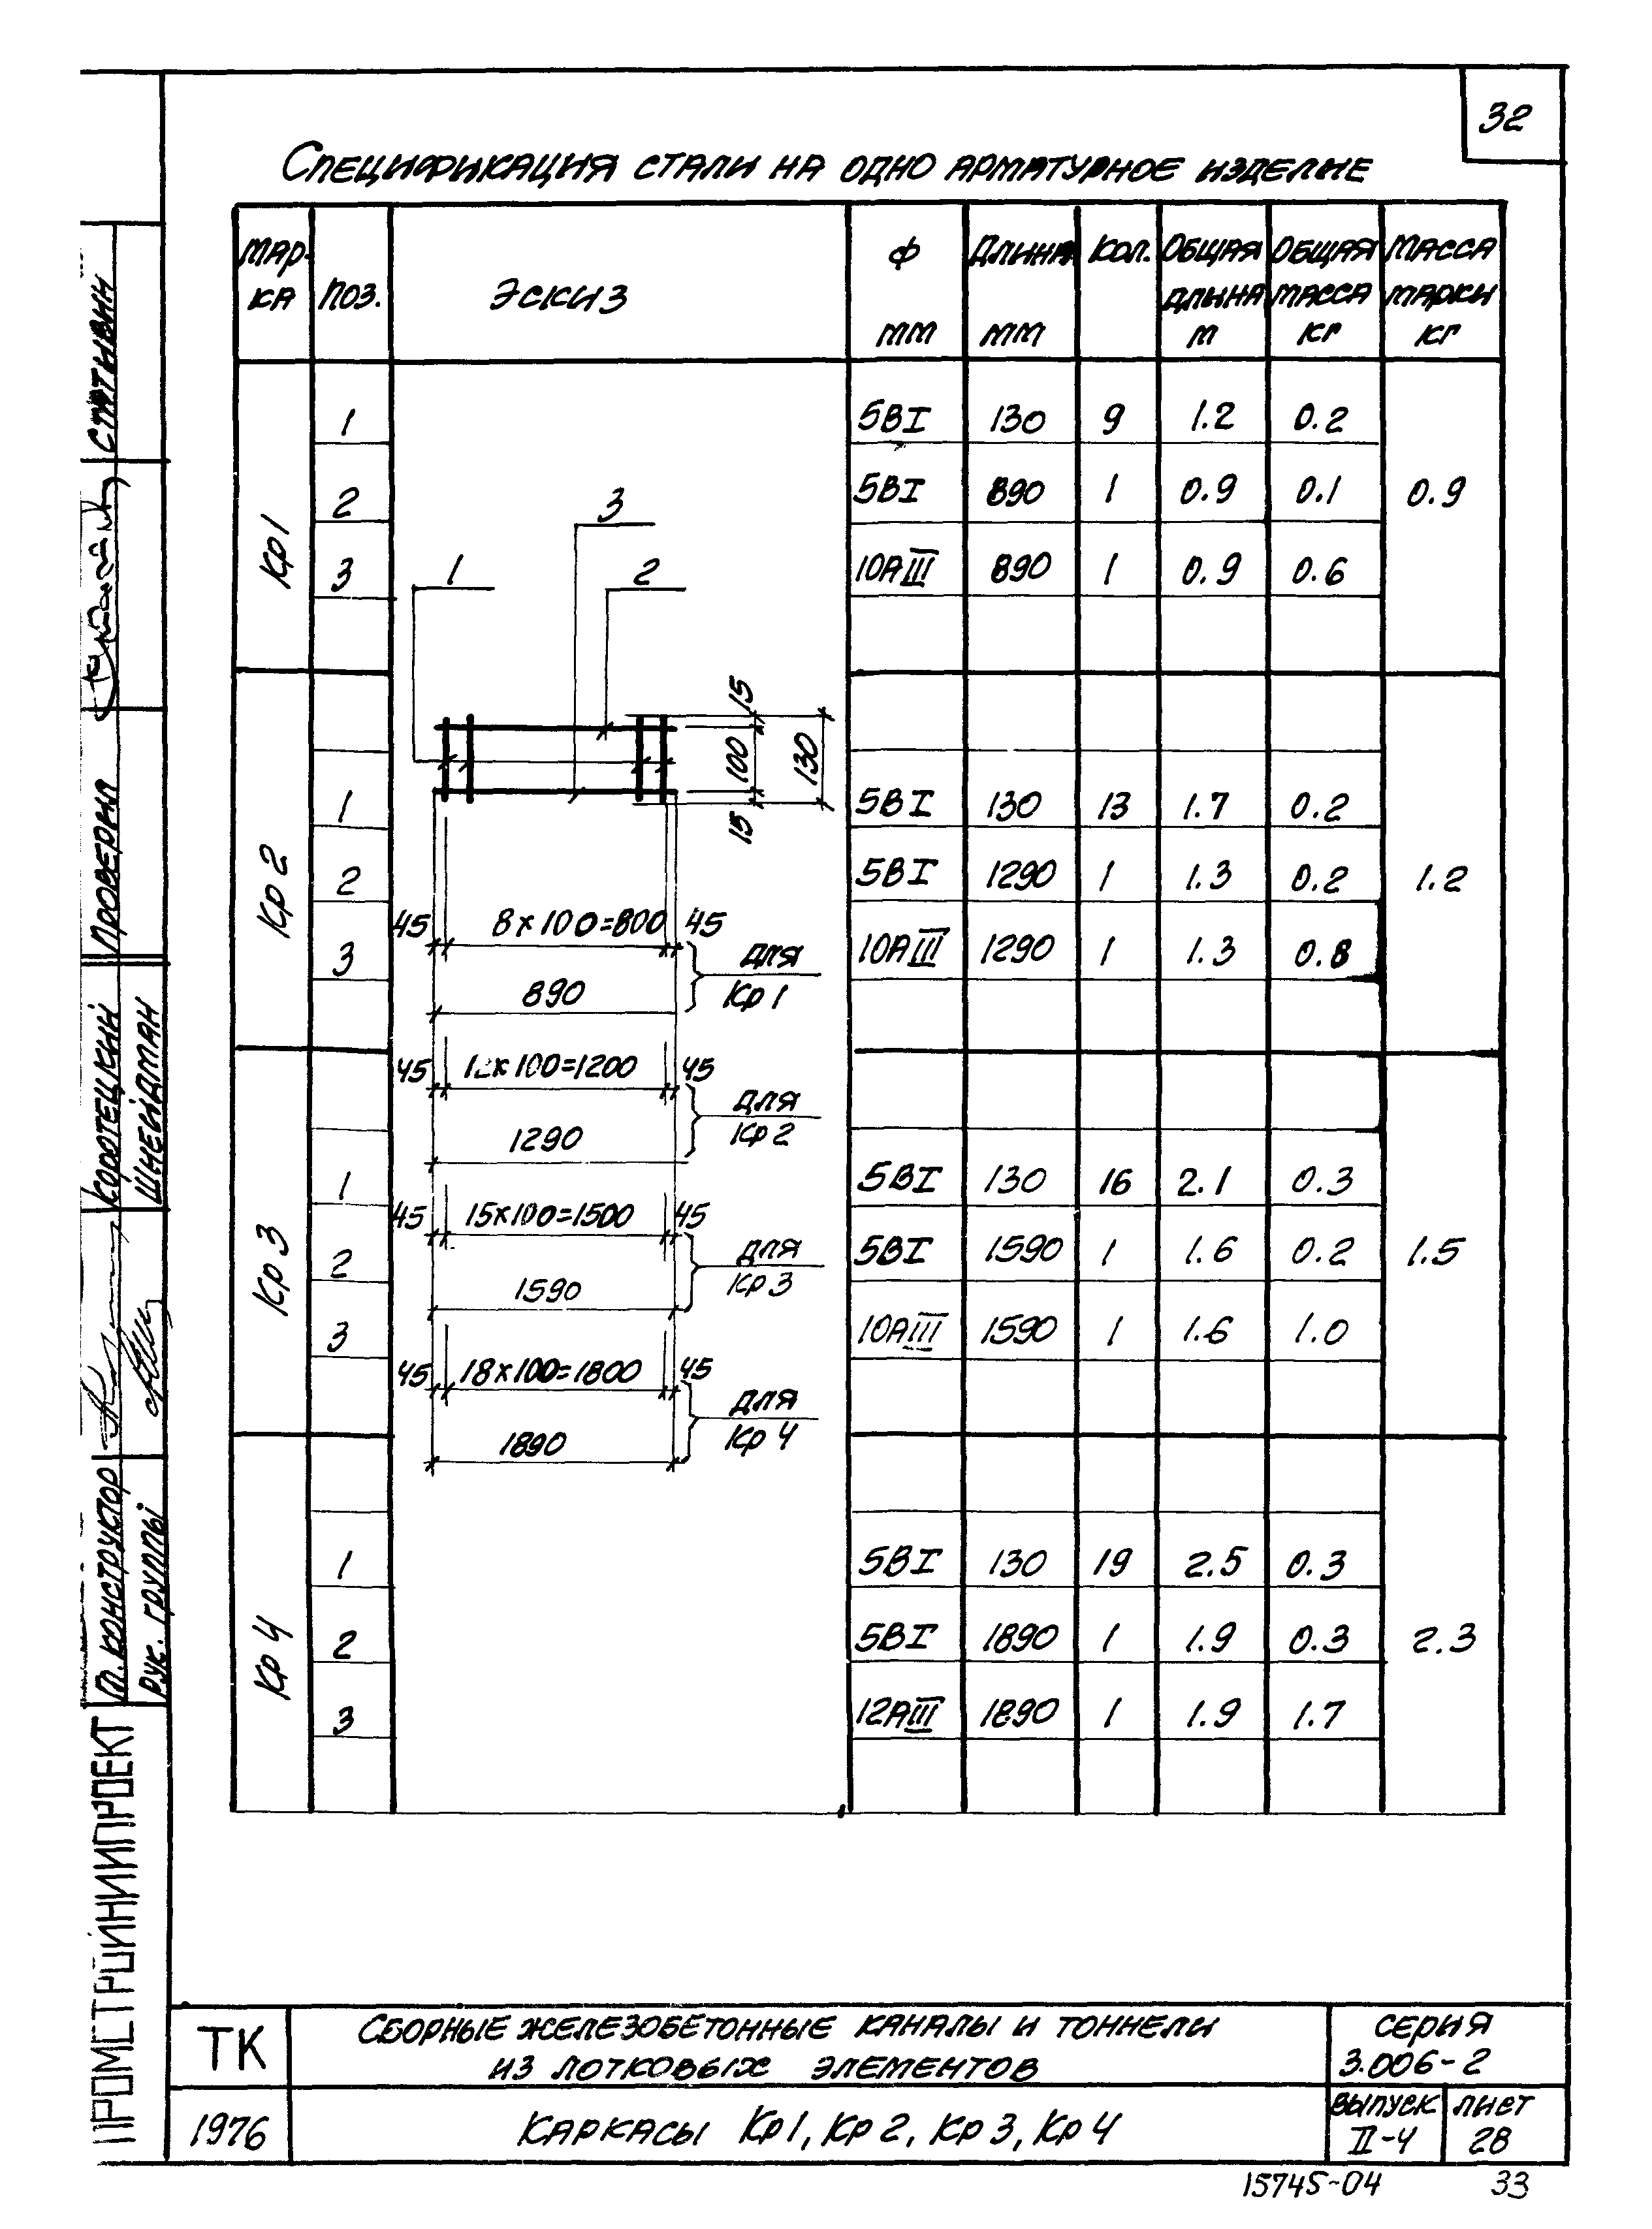 32
Спецификация стали на одно арматурное изделие
Мар-
ка
Поз.
Эскиз
Ф
мм
Длина
мм
Кол.
Общая
длина
м
Общая
масса
кг
Масса
марки
кг
Кр1
1 5ВI 130 9 1.2 0.2
2 5ВI 890 1 0.9 0.1 0.9
3 10АIII 890 1 0.9 0.6
Кр2
1 5ВI 130 13 1.7 0.2
2 5ВI 1290 1 1.3 0.2 1.2
3 10АIII 1290 1 1.3 0.8
Кр3
1 5ВI 130 16 2.1 0.3
2 5ВI 1590 1 1.6 0.2 1.5
3 10АIII 1590 1 1.6 1.0
Кр4
1 5ВI 130 19 2.5 0.3
2 5ВI 1890 1 1.9 0.3 2.3
3 12АIII 1890 1 1.9 1.7
3
1 2
15
100 130
15
45 8×100=800 45
для
Кр1
890
45 12×100=1200 45
для
Кр2
1290
45 15×100=1500 45
для
Кр3
1590
45 18×100=1800 45
для
Кр4
1890
Проверил
Коротецкий
Шнейдман
Гл. конструктор
Рук. группы
ПРОМСТРОЙНИИПРОЕКТ
ТК
1976
Сборные железобетонные каналы и тоннели
из лотковых элементов
Каркасы Кр1, Кр2, Кр3, Кр4
серия
3.006-2
выпуск
II-4
лист
28
15745-04 33